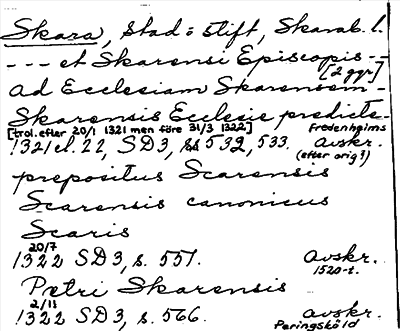 Skara, Stad o stift, Skarab. l.
--- et Skarensi Episcopis --
[2 ggr]
ad Ecclesiam Skarensem-
Skarensis Ecclesie predicte-
[trol. efter 20/1 1321 men före 31/3 1322] Fredenheims
1321 el. 22, SD3, ss 532, 533. avskr.
(efter orig?)
prepositus Scarensis
Scarensis canonicus
Scaris
20/7
1322 SD3, s. 551. Avskr.
1520-t.
Petri Skarensis
2/11
1322 SD3, s. 566. avskr.
Peringskiöld